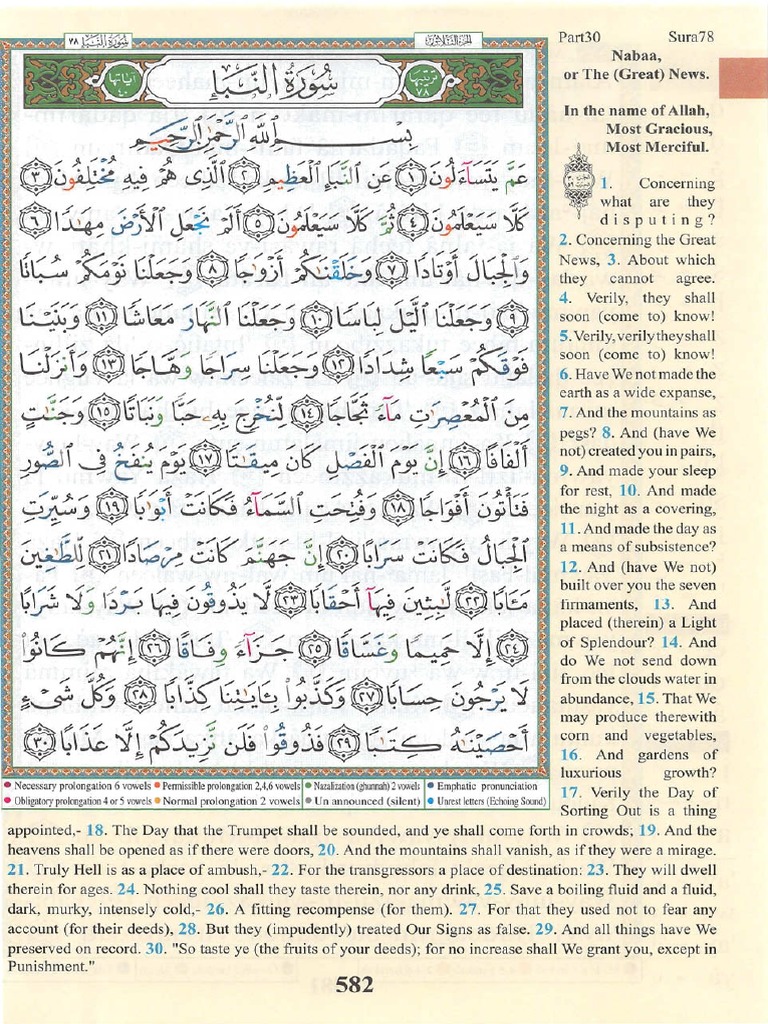 سورة النبإ ٧٨
الجزء الثلاثون
آياتها ٤٠
سُورَةُ النَّبَإِ
ترتيبها ٧٨
بِسْمِ اللَّهِ الرَّحْمَٰنِ الرَّحِيمِ
عَمَّ يَتَسَآءَلُونَ ﴿١﴾ عَنِ النَّبَإِ الْعَظِيمِ ﴿٢﴾ الَّذِى هُمْ فِيهِ مُخْتَلِفُونَ ﴿٣﴾
كَلَّا سَيَعْلَمُونَ ﴿٤﴾ ثُمَّ كَلَّا سَيَعْلَمُونَ ﴿٥﴾ أَلَمْ نَجْعَلِ الْأَرْضَ مِهَٰدًا ﴿٦﴾
وَالْجِبَالَ أَوْتَادًا ﴿٧﴾ وَخَلَقْنَٰكُمْ أَزْوَٰجًا ﴿٨﴾ وَجَعَلْنَا نَوْمَكُمْ سُبَاتًا
﴿٩﴾ وَجَعَلْنَا الَّيْلَ لِبَاسًا ﴿١٠﴾ وَجَعَلْنَا النَّهَارَ مَعَاشًا ﴿١١﴾ وَبَنَيْنَا
فَوْقَكُمْ سَبْعًا شِدَادًا ﴿١٢﴾ وَجَعَلْنَا سِرَاجًا وَهَّاجًا ﴿١٣﴾ وَأَنزَلْنَا
مِنَ الْمُعْصِرَٰتِ مَآءً ثَجَّاجًا ﴿١٤﴾ لِّنُخْرِجَ بِهِۦ حَبًّا وَنَبَاتًا ﴿١٥﴾ وَجَنَّٰتٍ
أَلْفَافًا ﴿١٦﴾ إِنَّ يَوْمَ الْفَصْلِ كَانَ مِيقَٰتًا ﴿١٧﴾ يَوْمَ يُنفَخُ فِى الصُّورِ
فَتَأْتُونَ أَفْوَاجًا ﴿١٨﴾ وَفُتِحَتِ السَّمَآءُ فَكَانَتْ أَبْوَٰبًا ﴿١٩﴾ وَسُيِّرَتِ
الْجِبَالُ فَكَانَتْ سَرَابًا ﴿٢٠﴾ إِنَّ جَهَنَّمَ كَانَتْ مِرْصَادًا ﴿٢١﴾ لِّلطَّٰغِينَ
مَـَٔابًا ﴿٢٢﴾ لَّٰبِثِينَ فِيهَآ أَحْقَابًا ﴿٢٣﴾ لَّا يَذُوقُونَ فِيهَا بَرْدًا وَلَا شَرَابًا
﴿٢٤﴾ إِلَّا حَمِيمًا وَغَسَّاقًا ﴿٢٥﴾ جَزَآءً وِفَاقًا ﴿٢٦﴾ إِنَّهُمْ كَانُوا۟
لَا يَرْجُونَ حِسَابًا ﴿٢٧﴾ وَكَذَّبُوا۟ بِـَٔايَٰتِنَا كِذَّابًا ﴿٢٨﴾ وَكُلَّ شَىْءٍ
أَحْصَيْنَٰهُ كِتَٰبًا ﴿٢٩﴾ فَذُوقُوا۟ فَلَن نَّزِيدَكُمْ إِلَّا عَذَابًا ﴿٣٠﴾
Necessary prolongation 6 vowels Permissible prolongation 2,4,6 vowels Nazalization (ghunnah) 2 vowels Emphatic pronunciation
Obligatory prolongation 4 or 5 vowels Normal prolongation 2 vowels Un announced (silent) Unrest letters (Echoing Sound)
Part30 Sura78
Nabaa,
or The (Great) News.
In the name of Allah,
Most Gracious,
Most Merciful.
1. Concerning
what are they
disputing?
2. Concerning the Great
News, 3. About which
they cannot agree.
4. Verily, they shall
soon (come to) know!
5. Verily, verily they shall
soon (come to) know!
6. Have We not made the
earth as a wide expanse,
7. And the mountains as
pegs? 8. And (have We
not) created you in pairs,
9. And made your sleep
for rest, 10. And made
the night as a covering,
11. And made the day as
a means of subsistence?
12. And (have We not)
built over you the seven
firmaments, 13. And
placed (therein) a Light
of Splendour? 14. And
do We not send down
from the clouds water in
abundance, 15. That We
may produce therewith
corn and vegetables,
16. And gardens of
luxurious growth?
17. Verily the Day of
Sorting Out is a thing
appointed,- 18. The Day that the Trumpet shall be sounded, and ye shall come forth in crowds; 19. And the
heavens shall be opened as if there were doors, 20. And the mountains shall vanish, as if they were a mirage.
21. Truly Hell is as a place of ambush,- 22. For the transgressors a place of destination: 23. They will dwell
therein for ages. 24. Nothing cool shall they taste therein, nor any drink, 25. Save a boiling fluid and a fluid,
dark, murky, intensely cold,- 26. A fitting recompense (for them). 27. For that they used not to fear any
account (for their deeds), 28. But they (impudently) treated Our Signs as false. 29. And all things have We
preserved on record. 30. "So taste ye (the fruits of your deeds); for no increase shall We grant you, except in
Punishment."
582